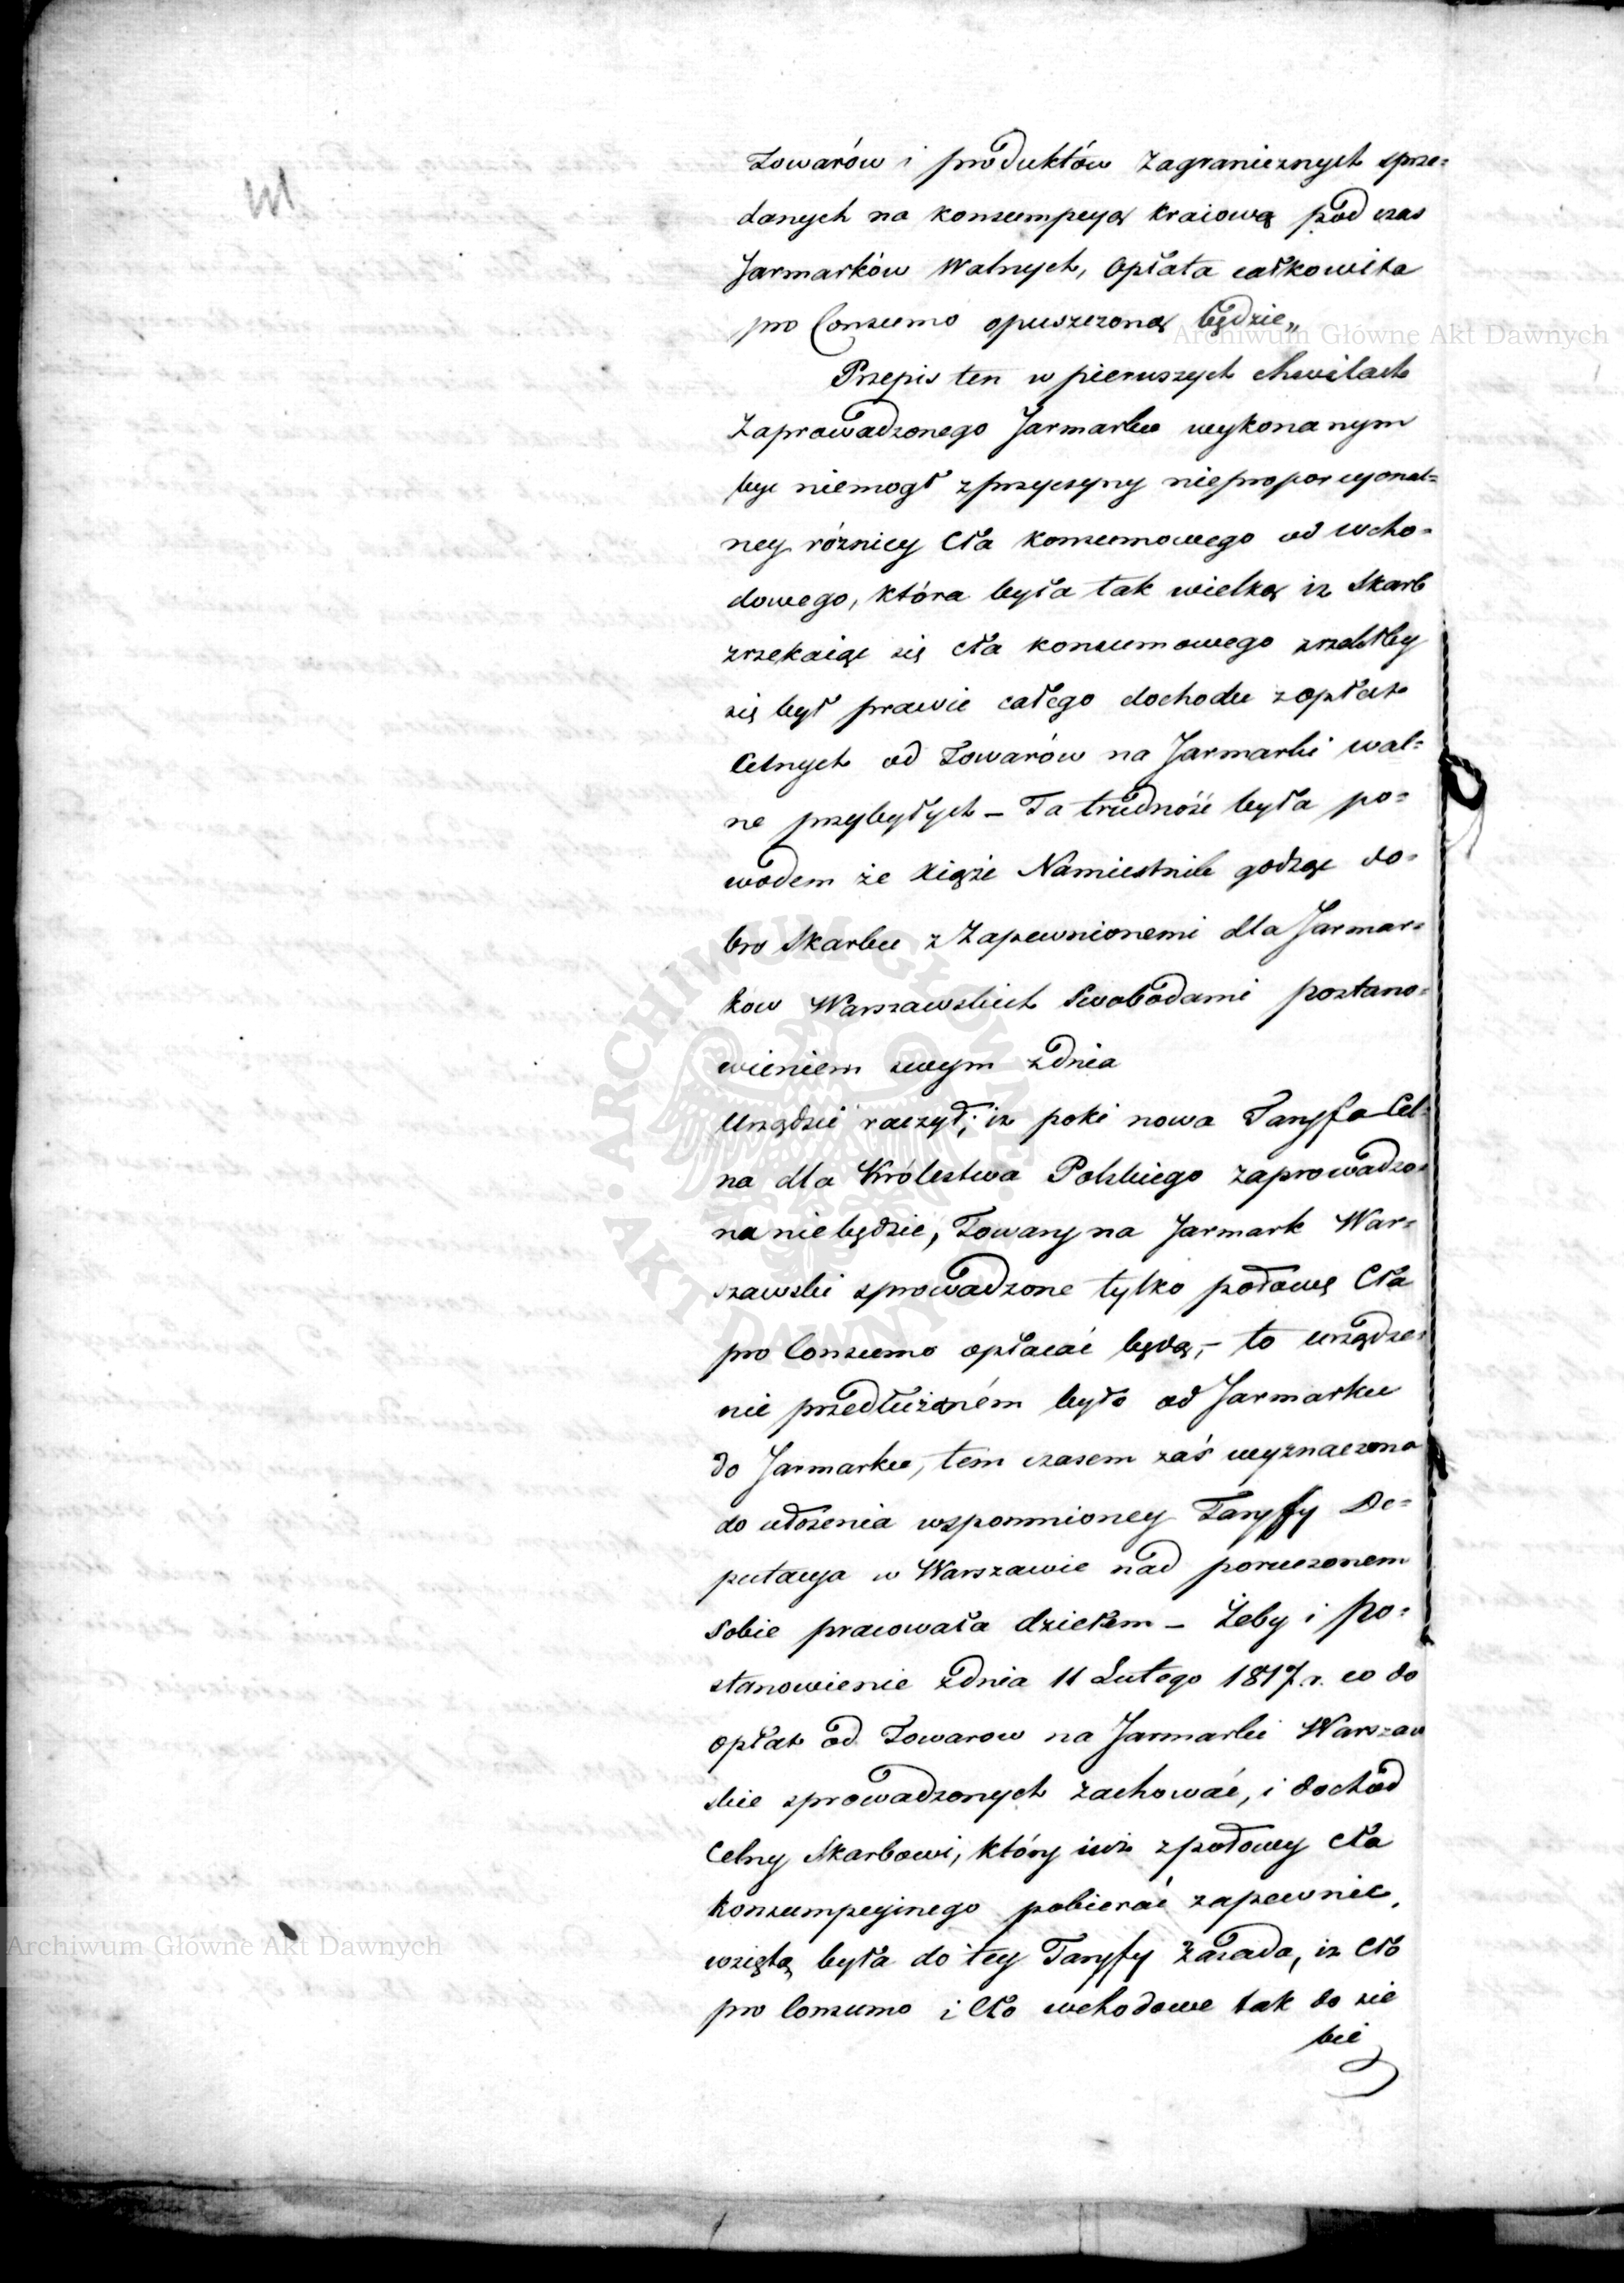 Towarów i produktów Zagranicznych sprze=
danych na konsumpcyą kraiową podczas
Jarmarków Walnych, Opłata całkowita
pro Consumo opuszczoną będzie„
Przepis ten w pierwszych chwilach
Zaprowadzonego Jarmarku wykonanym
być niemogł zprzyczyny nieproporcyonal=
ney różnicy Cła konsumowego od wcho=
dowego, która była tak wielką iz Skarb
zrzekaiąc się cła konsumowego zrzekłby
się był prawie całego dochodu zopłat
Celnych od Towarów na Jarmarki wal=
ne przybyłych – Ta trudność była po=
wodem że Xiąże Namiestnik godząc do=
bro Skarbu z Zapewnionemi dla Jarmar=
kow Warszawskich Swobodami postano=
wieniem swym zdnia
Urządzić raczył, iz poki nowa Taryfa Cel=
na dla Królestwa Polskiego zaprowadzo=
na niebędzie, Towary na Jarmark War=
szawski sprowadzone tylko połowę Cła
pro Consumo opłacać będą, – to urządze=
nie przedłużoném było od Jarmarku
do Jarmarku, tem czasem zaś wyznaczona
do ułożenia wspomnioney Taryfy De=
putacya w Warszawie nad poruczonem
Sobie pracowała dziełem – Żeby i Po=
stanowienie zdnia 11 Lutego 1817 r. co do
opłat od Towarow na Jarmarki Warszaw
skie sprowadzonych zachować, i dochód
Celny Skarbowi, który iuż zpołowy cła
konsumpcyinego pobierać zapewnić,
wziętą była do tey Taryfy Zasada, iz Cło
pro Consumo i Cło wchodowe tak do sie
bie
Archiwum Główne Akt Dawnych
Archiwum Główne Akt Dawnych
ARCHIWUM GŁÓWNE • AKT DAWNYCH •